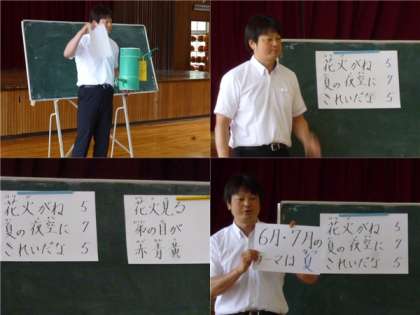 花火がね 5
夏の夜空に 7
きれいだな 5
花火がね 5
夏の夜空に 7
きれいだな 5
花火見る
弟の目が
赤青黄
6月・7月の
ーマは「夏」
花火がね 5
夏の夜空に 7
きれいだな 5